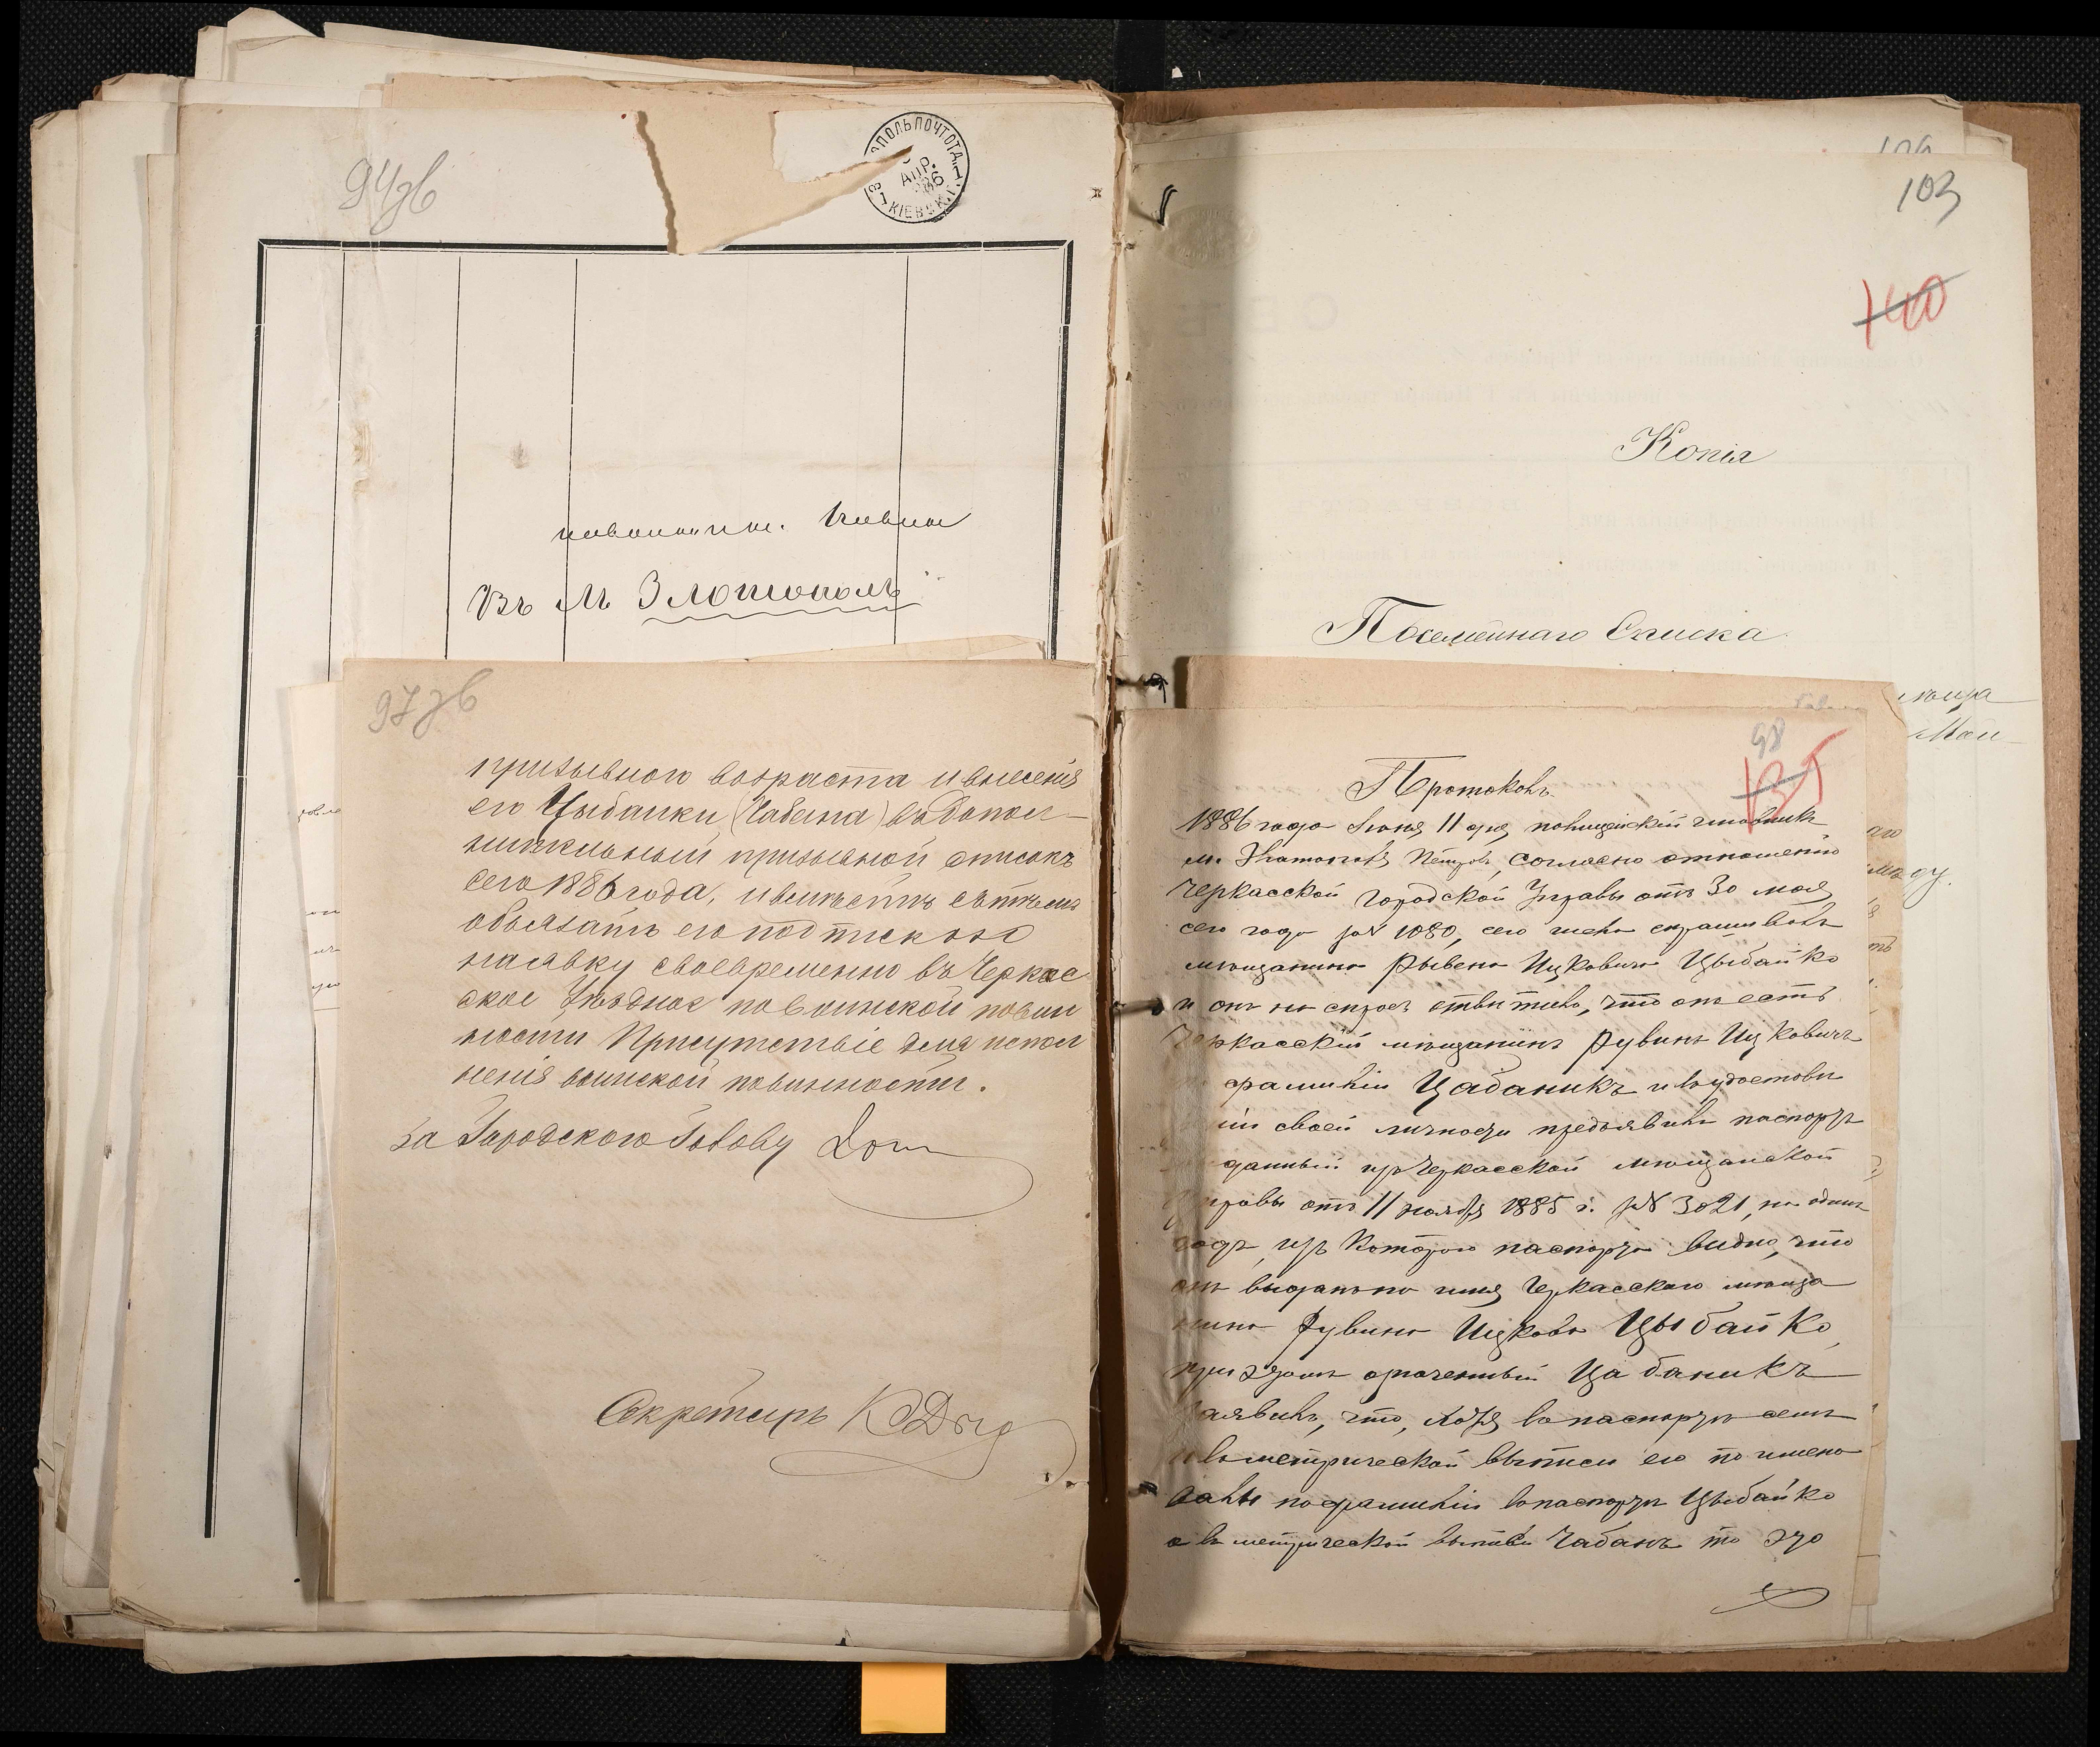 94зв
КІЕВСК.
АПР.
Въ М. Златополь
97зв
призывного возраста и внесенія
его Цыбайки (Чабана) въ допол-
нительный призывной списокъ
сего 1886 года, и вмѣстѣ съ тѣмъ
обязать его подпискою
на явку своевременно въ Черкас
ское Уѣздное по воинской повин
ности Присутствіе для испол
ненія воинской повинности.
За Городского Голову
Секретарь
103
140
Копія
Посемейнаго Списка
98
135
Протоколъ
1886 года Іюня 11 дня, полицейскій чиновникъ
м. Златополя Петровъ, согласно отношенію
Черкасской Городской Управы отъ 30 мая
сего года за № 1080, сего числа спрашивалъ
мѣщанина Рывена Ицковича Цыбайко
и онъ на спросъ отвѣтилъ, что онъ есть
Черкасскій мѣщанинъ Рувинъ Ицковичъ
фамиліи Цабаникъ и въ удостовѣ
ніи своей личности предъявилъ паспортъ
данный изъ Черкасской мѣщанской
управы отъ 11 ноября 1885 г. за № 3021, на одинъ
годъ, изъ котораго паспорта видно, что
онъ выданъ на имя Черкасскаго мѣща
нина Рувина Ицкова Цыбайко,
при этомъ означенный Цабаникъ
заявилъ, что, хотя въ паспортѣ семъ
и въ метрической выписи его по имено
ваны по фамиліи въ паспортѣ Цыбайко
а въ метрической выписи Чабанъ то это